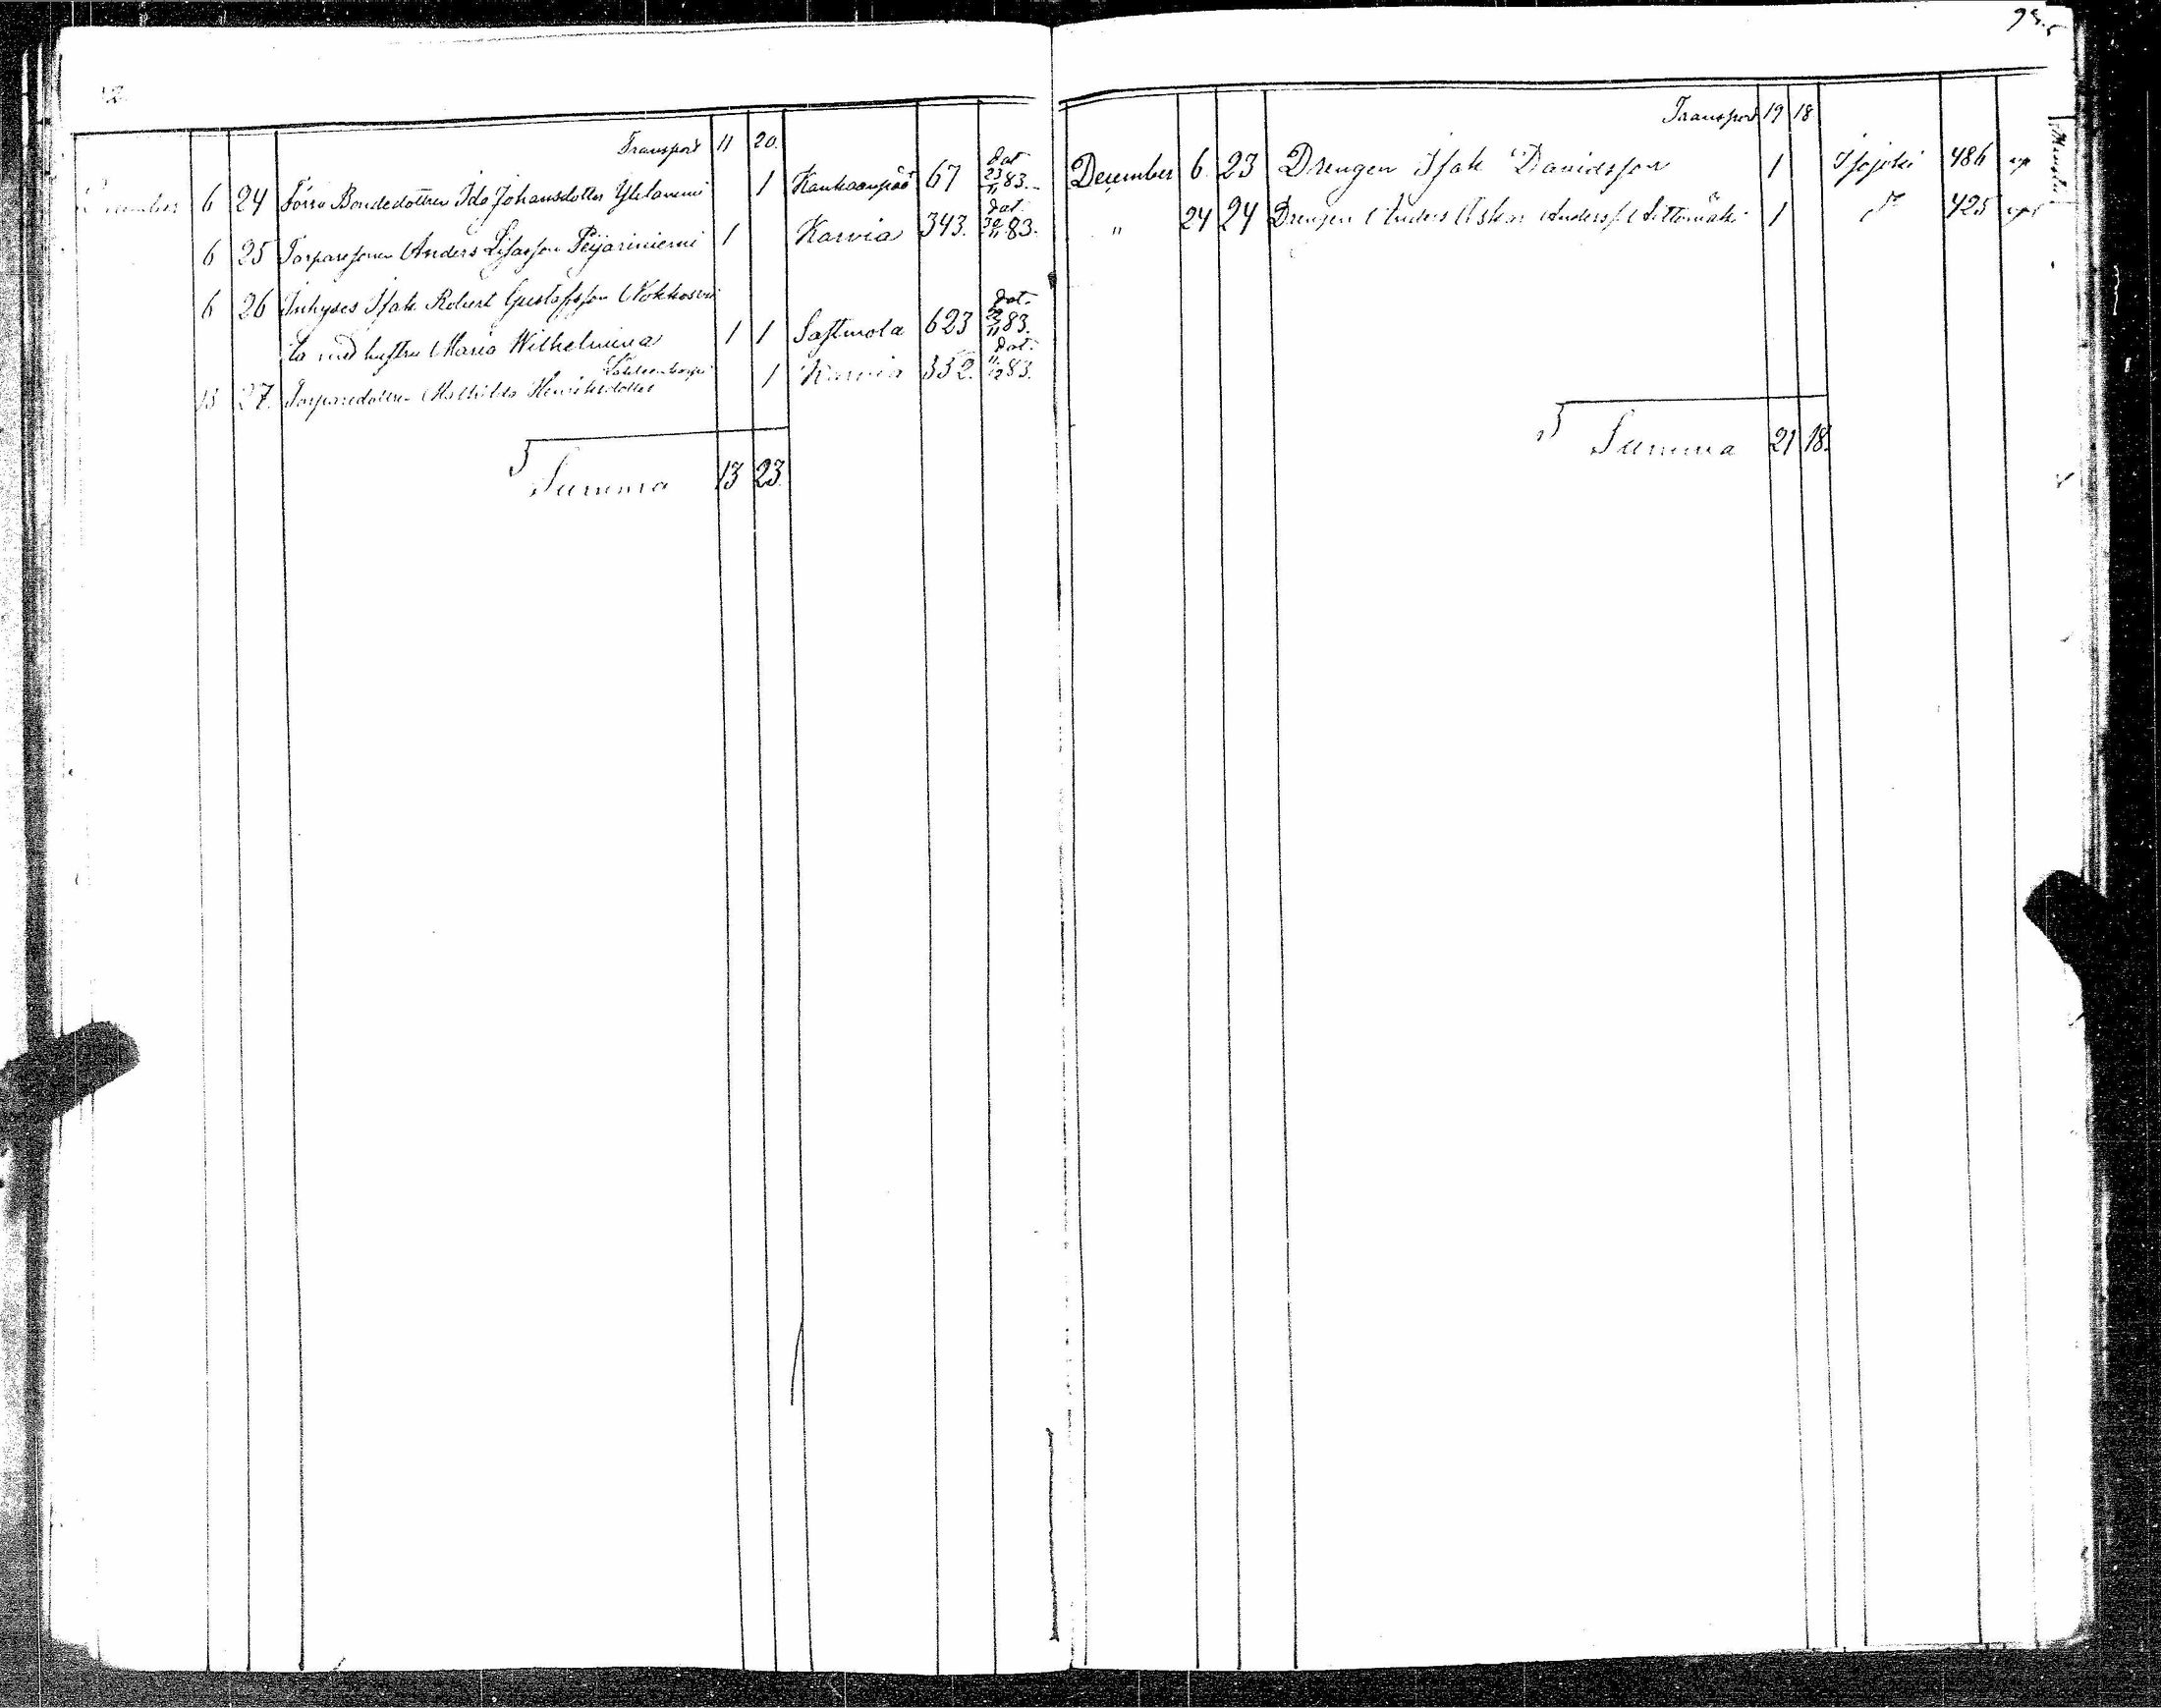 Transport 11 20.
December 6 24 Förra Bondedottren Ida Johansdotter Yliluomi 1 Kankaanpää 67 dat. 23/11 83.
6 25 Torparesonen Anders Esaiasson Peijariniemi 1 Karvia 343. dat. 30/11 83.
6 26 Inhyses Isak Robert Gustafsson
ta med hustru Maria Wilhelmina 1 1 Sastmola 623 dat. 83.
27. Torparedottren Mathilda Henriksdotter 1 Karvia 352. dat. 11/12 83.
Summa 13 23.
Transport 19 18
December 6. 23 Drengen Isak Davidsson 1 Isojoki 486
" 24 24 Drengen Anders Oskar Anderss. 1 425
Summa 21 18.